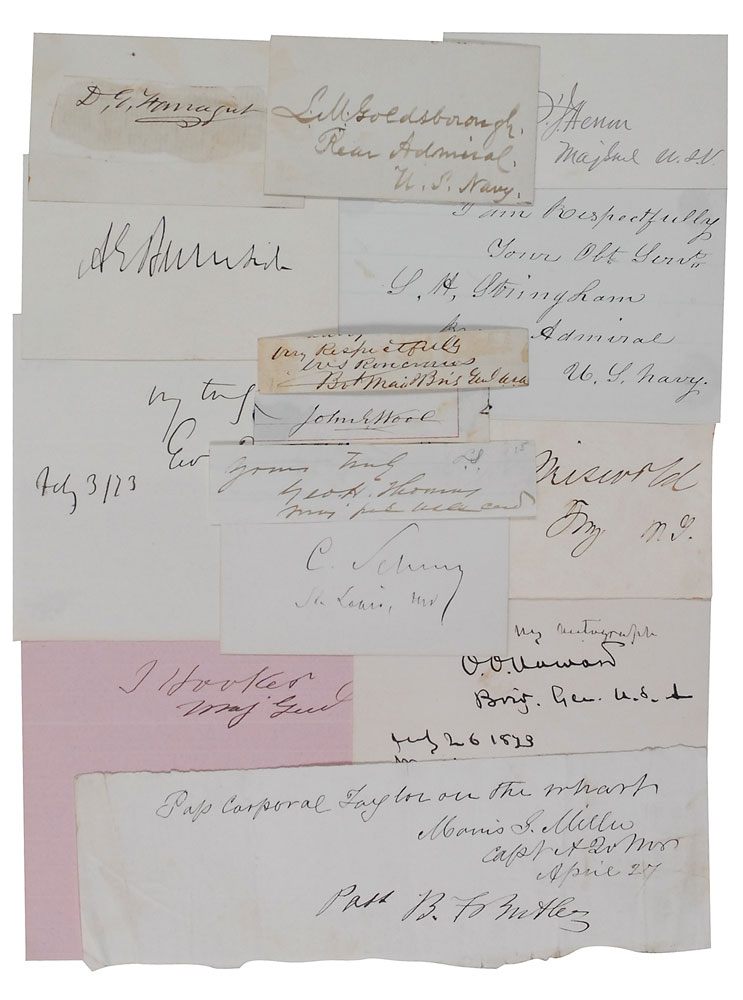 D. G. Farragut
L. M. Goldsborough.
Rear Admiral.
U. S. Navy.
Maj Genl U.S.V
I am Respectfully
Your Obt Servt
S. H. Stringham
Admiral
U. S. Navy.
A E Burnside
Very Respectfully
Bvt Maj & Brig Genl USA
John E Wool
Geo
July 3/73
Yours truly
Geo H. Thomas
Griswold
Troy N.Y.
C. Schurz
St. Louis, Mo
My autograph
O. O. Howard
Brig. Gen. U.S. A
July 26 1873
J Hooker
Maj Genl
Pass Corporal Taylor on the wharf
Morris S. Miller
Capt A Q M
April 27
Pass B. F Butler